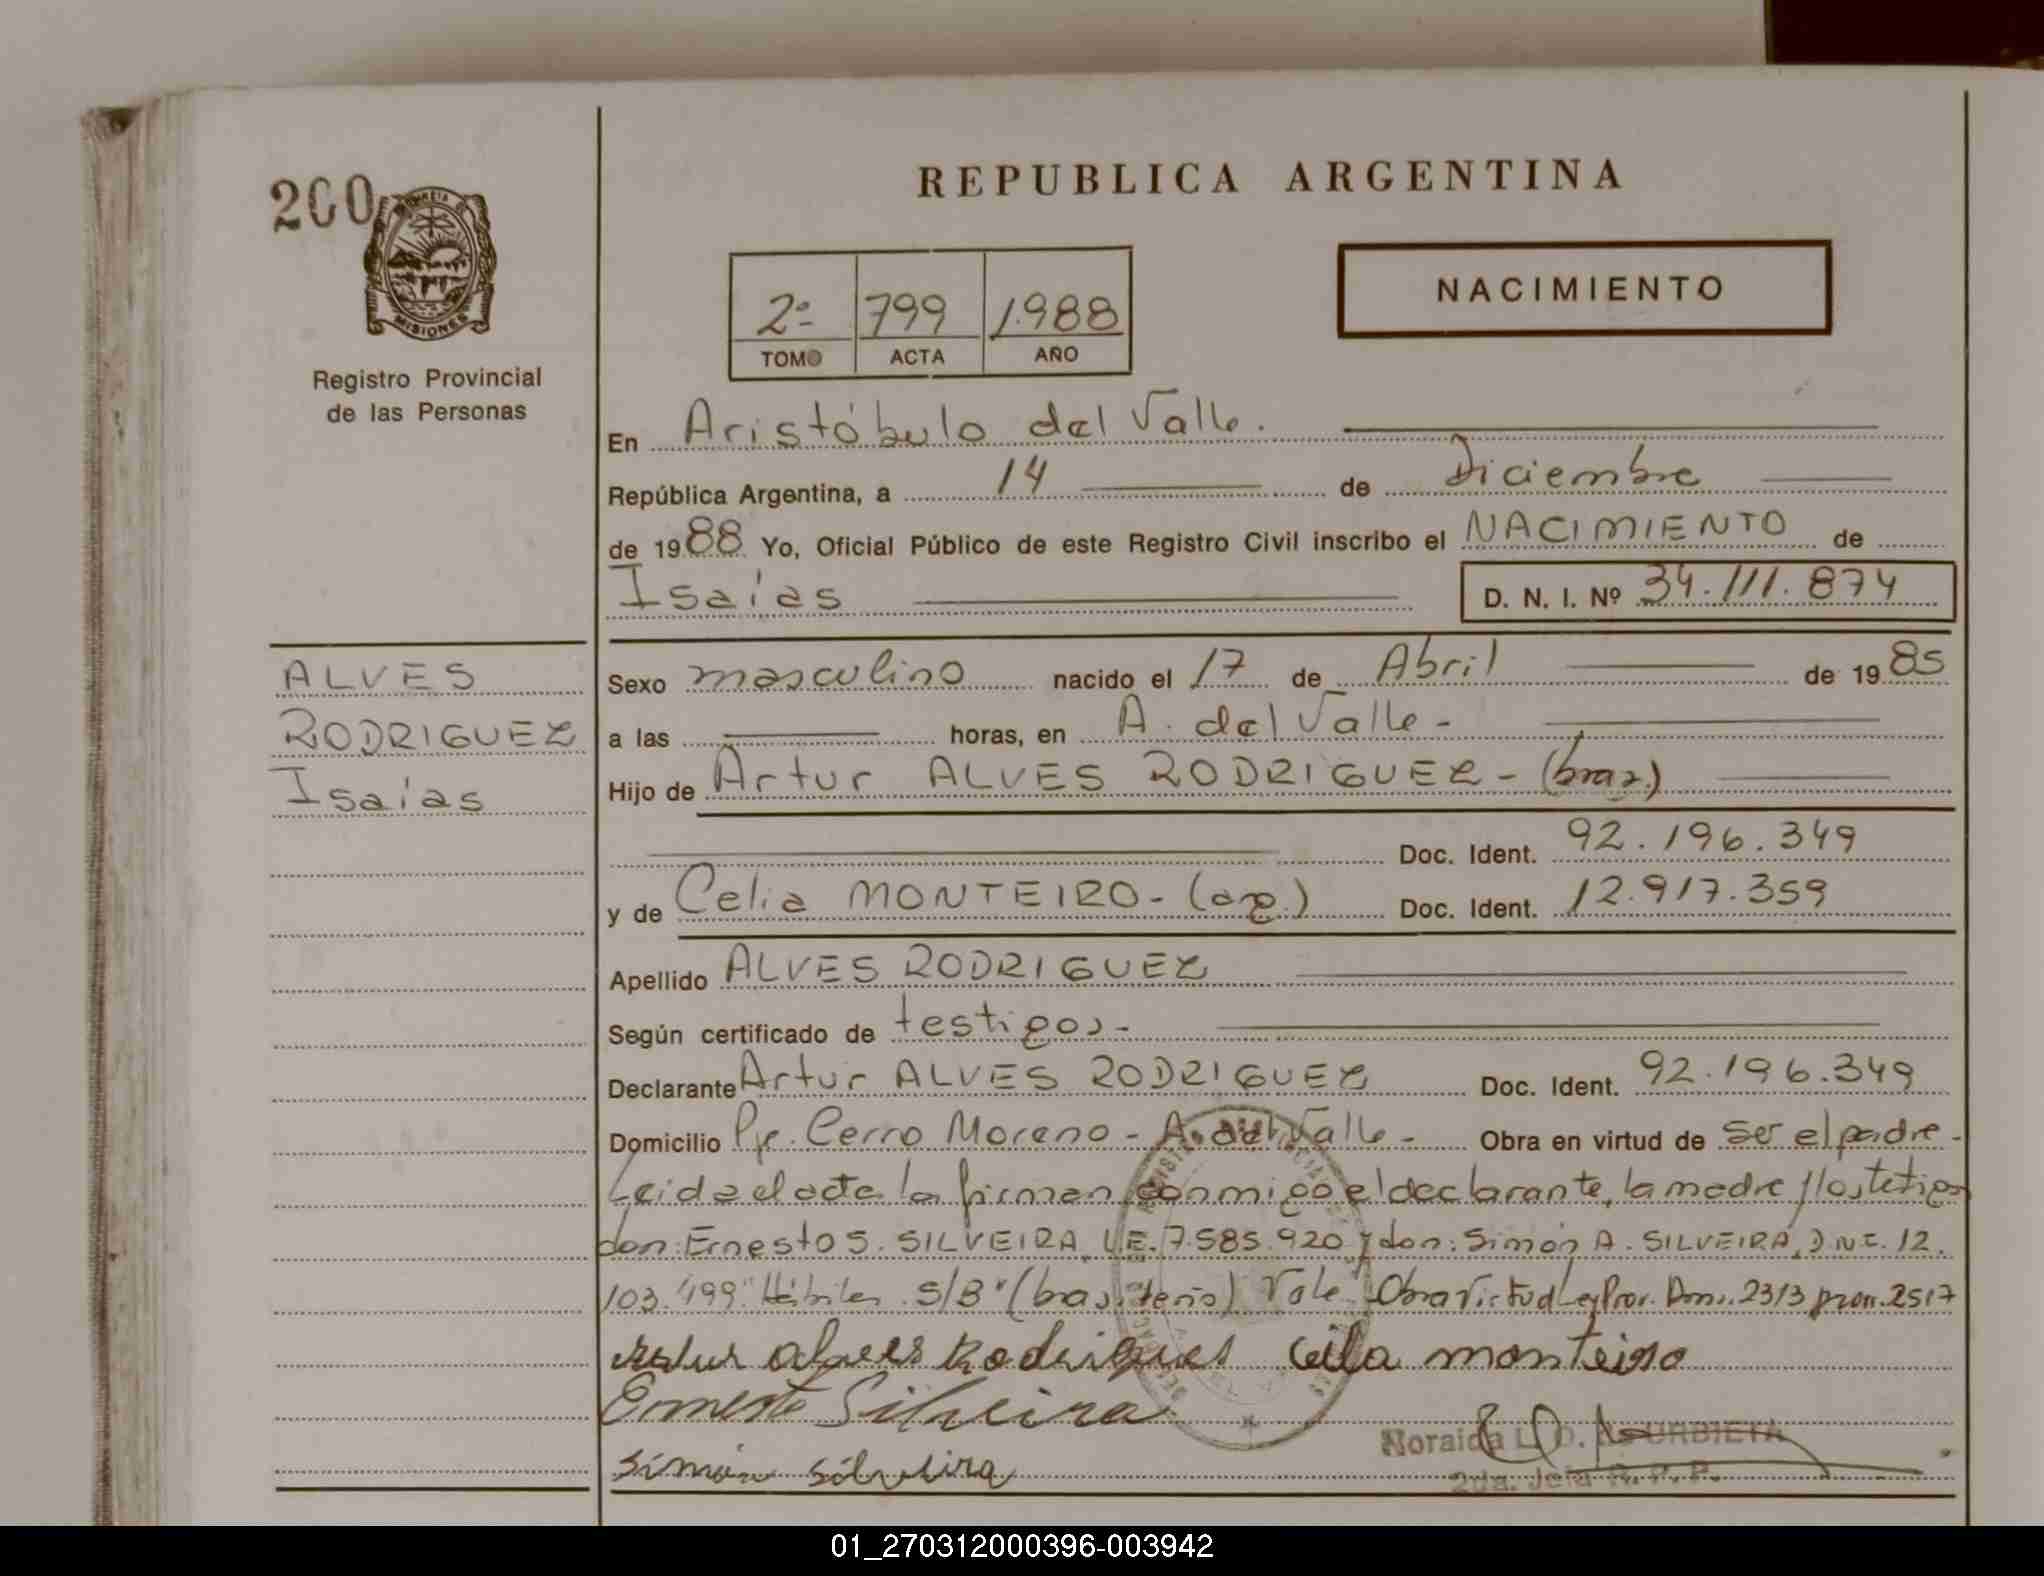 200
PROVINCIA DE
MISIONES
Registro Provincial
de las Personas
REPUBLICA ARGENTINA
2º 799 1.988
TOMO ACTA AÑO
NACIMIENTO
En Aristóbulo del Valle.
República Argentina, a 14 de Diciembre
de 1988 Yo, Oficial Público de este Registro Civil inscribo el NACIMIENTO de
Isaías D. N. I. Nº 34.111.874
ALVES
RODRIGUEZ
Isaías
Sexo masculino nacido el 17 de Abril de 1985
a las horas, en A. del Valle-
Hijo de Artur ALVES RODRIGUEZ - (braz.)
Doc. Ident. 92.196.349
y de Celia MONTEIRO - (arg.) Doc. Ident. 12.917.359
Apellido ALVES RODRIGUEZ
Según certificado de testigos-
Declarante Artur ALVES RODRIGUEZ Doc. Ident. 92.196.349
Domicilio Pje. Cerro Moreno - A. del Valle- Obra en virtud de ser el padre-
Leida el acta la firman conmigo el declarante, la madre y los testigos
don: Ernesto S. SILVEIRA, L.E. 7.585.920 y don: Simón A. SILVEIRA, D.N.I. 12.
103.499 "Hábiles S/B" (brasileño) Vale Obra Virtud Ley Prov. 2313 2517
Artur Alves Rodrigues Celia monteiro
Ernesto Silveira
Simón Silveira
Noraida L. D. URBIETA
2da. Jefa R. P. P.
01_270312000396-003942